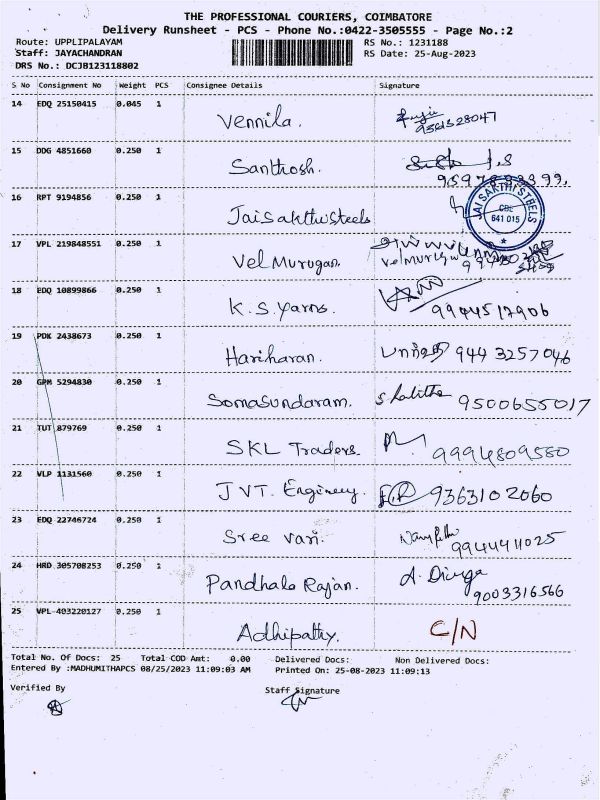 THE PROFESSIONAL COURIERS, COIMBATORE
Delivery Runsheet - PCS - Phone No.:0422-3505555 - Page No.:2
Route: UPPLIPALAYAM
RS No.: 1231188
Staff: JAYACHANDRAN
RS Date: 25-Aug-2023
DRS No.: DCJB123118802
S No Consignment No Weight PCS Consignee Details Signature
14 EDQ 25150415 0.045 1 Vennila.
9361328047
15 DDG 4851660 0.250 1 Santhosh.
16 RPT 9194856 0.250 1 Jaisakthisteels
JAI SAKTHI STEELS
CBE
641 015
17 VPL 219848551 0.250 1 Vel Murugan.
18 EDQ 10899866 0.250 1 K.S. Yarns. 9944517906
19 PDK 2438673 0.250 1 Hariharan. 944 3257046
20 GPM 5294830 0.250 1 Somasundaram. Shalitha 9500655017
21 TUT 879769 0.250 1 SKL Traders. 9994809580
22 VLP 1131560 0.250 1 JVT. Enginery. 9363102060
23 EDQ 22746724 0.250 1 Sree Vari. 9944411025
24 HRD 305708253 0.250 1 Pandhala Rajan. A. Divya
9003316566
25 VPL-403220127 0.250 1 Adhipathy. C/N
Total No. Of Docs: 25 Total COD Amt: 0.00 Delivered Docs: Non Delivered Docs:
Entered By :MADHUMITHAPCS 08/25/2023 11:09:03 AM Printed On: 25-08-2023 11:09:13
Verified By Staff Signature